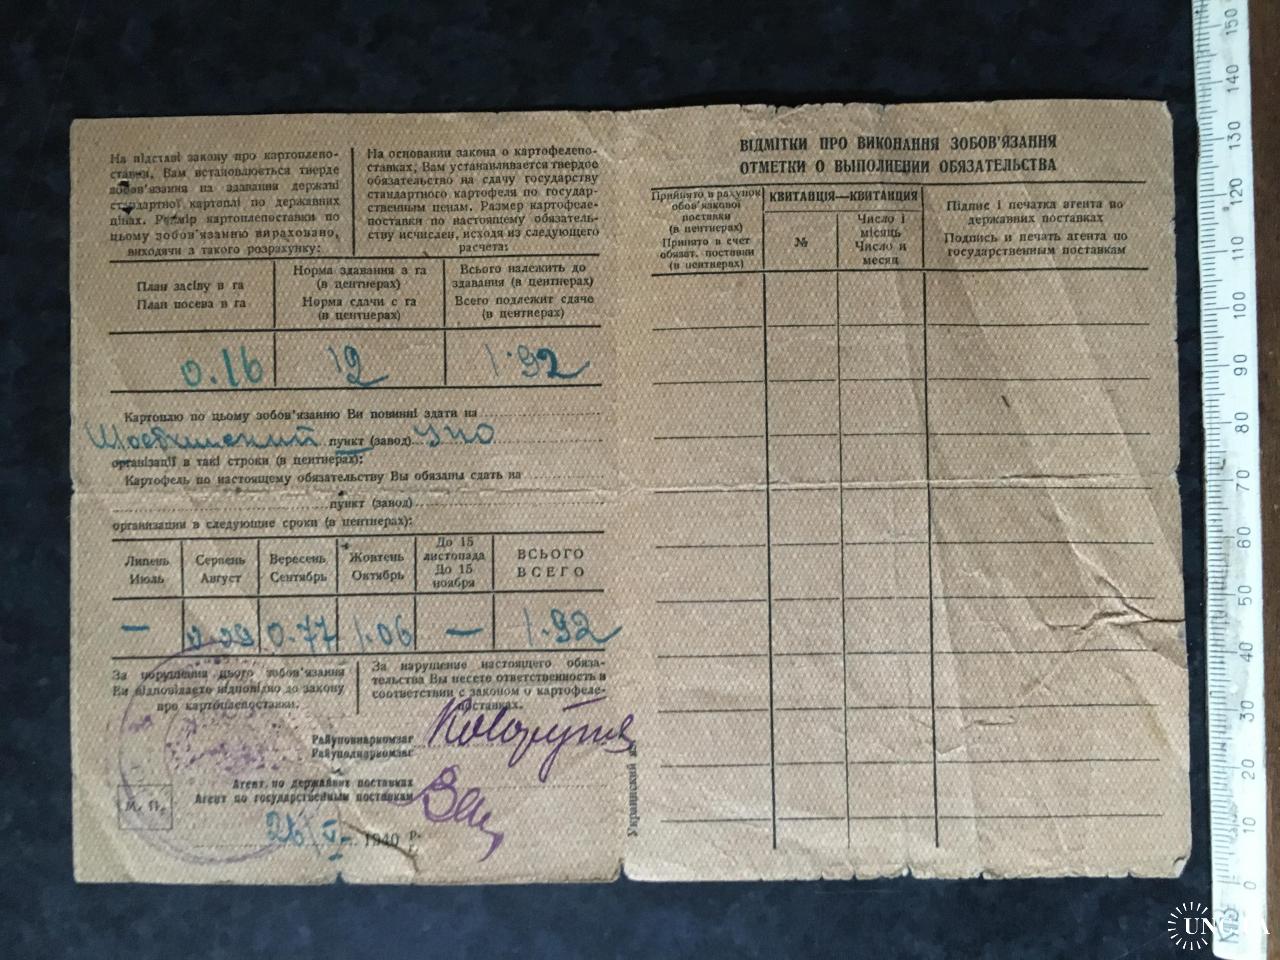 На підставі закону про картоплепо-
ставки, Вам встановлюється тверде
зобов'язання на здавання державі
стандартної картоплі по державних
цінах. Розмір картоплепоставки по
цьому зобов'язанню вираховано,
виходячи з такого розрахунку:
На основании закона о картофелепо-
ставках, Вам устанавливается твердое
обязательство на сдачу государству
стандартного картофеля по государ-
ственным ценам. Размер картофеле-
поставки по настоящему обязатель-
ству исчислен, исходя из следующего
расчета:
План засіву в га
План посева в га
Норма здавання з га
(в центнерах)
Норма сдачи с га
(в центнерах)
Всього належить до
здавання (в центнерах)
Всего подлежит сдаче
(в центнерах)
0.16 12 1.92
Картоплю по цьому зобов'язанню Ви повинні здати на
пункт (завод)
організації в такі строки (в центнерах):
Картофель по настоящему обязательству Вы обязаны сдать на
пункт (завод)
организации в следующие сроки (в центнерах):
Липень
Июль
Серпень
Август
Вересень
Сентябрь
Жовтень
Октябрь
До 15
листопада
До 15
ноября
ВСЬОГО
ВСЕГО
— 0.09 0.77 1.06 — 1.92
За порушення цього зобов'язання
Ви відповідаєте відповідно до закону
про картоплепоставки.
За нарушение настоящего обяза-
тельства Вы несете ответственность в
соответствии с законом о картофеле-
поставках.
Райуповнаркомзаг
Райуполнаркомзаг
Агент по державних поставках
Агент по государственным поставкам
М. П.
26/V 1940 р.
г.
ВІДМІТКИ ПРО ВИКОНАННЯ ЗОБОВ'ЯЗАННЯ
ОТМЕТКИ О ВЫПОЛНЕНИИ ОБЯЗАТЕЛЬСТВА
Прийнято в рахунок
обов'язкової
поставки
(в центнерах)
Принято в счет
обязат. поставки
(в центнерах)
КВИТАНЦІЯ—КВИТАНЦИЯ
№
Число і
місяць
Число и
месяц
Підпис і печатка агента по
державних поставках
Подпись и печать агента по
государственным поставкам
Украинский яз.
150
140
130
120
110
100
90
80
70
60
50
40
30
20
10
0